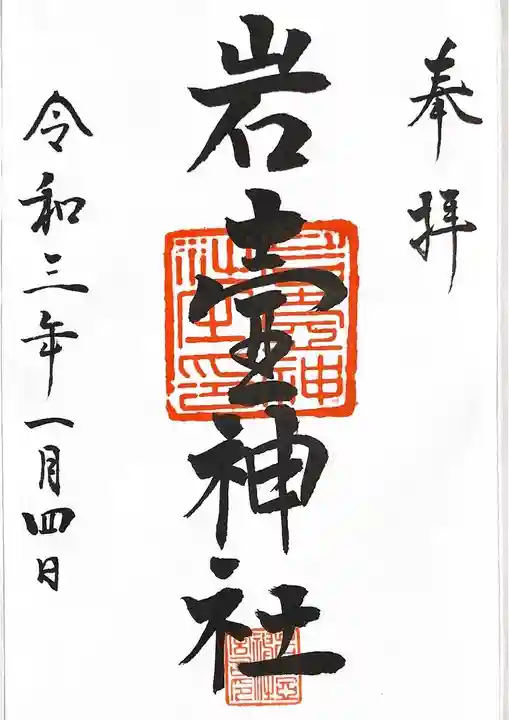 奉拝
岩壷神社
令和三年一月四日